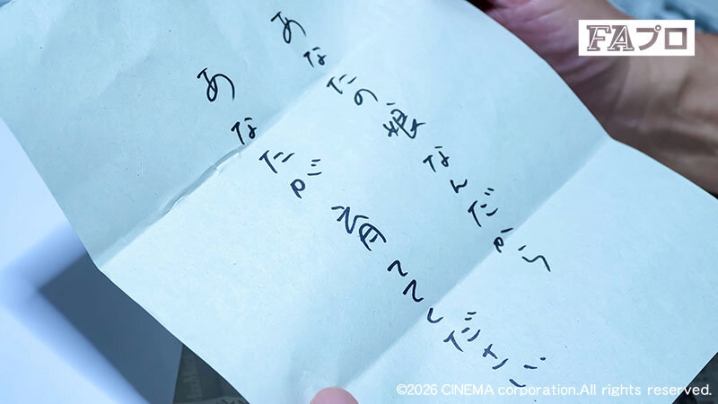 FAプロ
あなたの娘なんだから
あなたが育ててください
©2026 CINEMA corporation.All rights reserved.